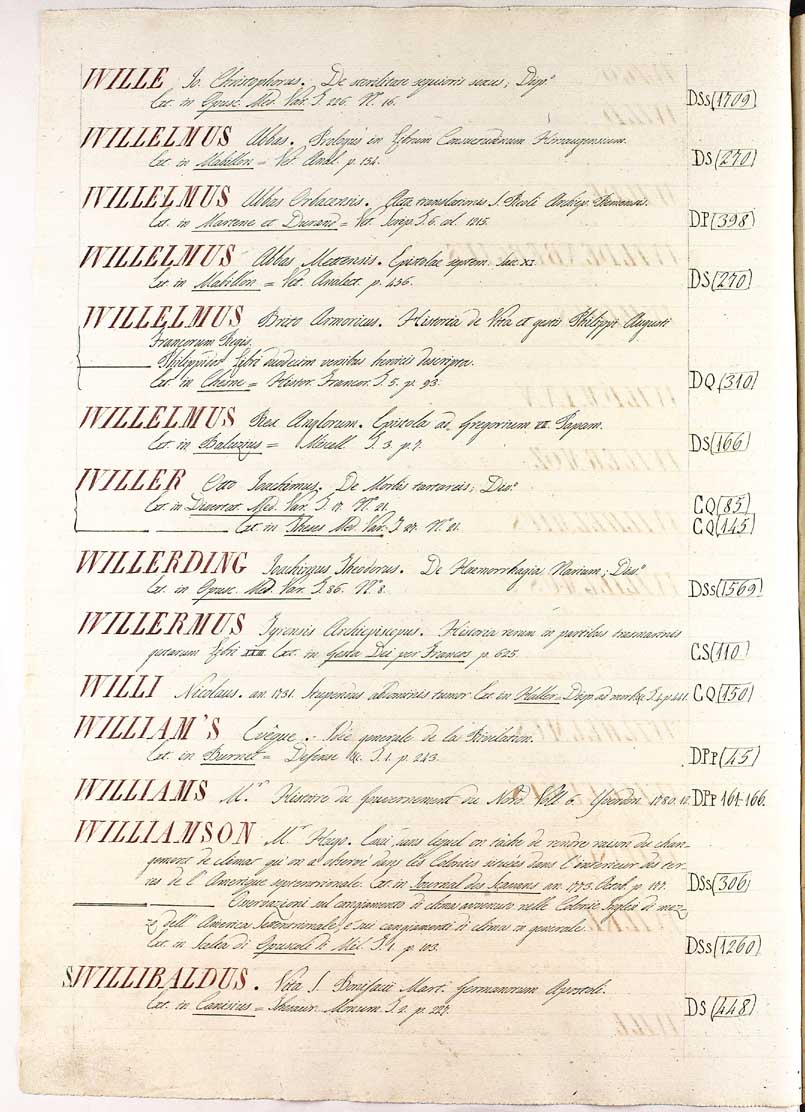 WILLE Jo. Christophorus. De sterilitate sequioris sexus; Disp.o
Ext. in Opusc. Med. Var. T. 226. N.o 16. DSs (1709)
WILLELMUS Abbas. Prologus in Librum Consuetudinum Hirsaugensium.
Ext. in Mabillon = Vet. Anal. p. 154. DS (270)
WILLELMUS Abbas Orbacensis. Acta translationis S. Archiep. Remensis.
Ext. in Martene et Durand = Vet. Scrip. T. 6. col. 1215. DP (398)
WILLELMUS Abbas Mettensis. Epistolae septem. Saec. XI.
Ext. in Mabillon = Vet. Analect. p. 456. DS (270)
WILLELMUS Brito Armoricus. Historia de Vita et gestis Philippi Augusti
Francorum Regis.
Philippidos Libri duodecim versibus heroicis descripta.
Ext. in Chesne = Histor. Francor. T. 5. p. 93. DQ (310)
WILLELMUS Rex Anglorum. Epistola ad Gregorium VII Papam.
Ext. in Baluzius = Miscell. T. 3. p. 7. DS (166)
WILLER Otto Joachimus. De Morbis tartareis; Diss.o
Ext. in Dissertat. Med. Var. T. 17. N.o 21. CQ (85)
Ext. in Theses Med. Var. T. 27. N.o 21. CQ (145)
WILLERDING Joachimus Theodorus. De Haemorrhagia Narium; Diss.o
Ext. in Opusc. Med. Var. T. 86. N.o 8. DSs (1569)
WILLERMUS Tyrensis Archiepiscopus. Historia rerum in partibus trasmarinis
gestarum Libri XXIII. Ext. in Gesta Dei per Francos p. 625. CS (110)
WILLI Nicolaus. an. 1731. Stupendus abdominis tumor. Ext. in Haller. Disp. ad morb. &c. T. 4. p. 441. CQ (150)
WILLIAM'S Evêque. Idée generale de la Revelation.
Ext. in Burnet = Defense &c. T. 1. p. 243. DPp (45)
WILLIAMS M.r Histoire du Gouvernement du Nord. Voll. 6. Yverdon. 1780. 12. DPp 161-166.
WILLIAMSON M.r Hugo. Essai dans lequel on tache de rendre raison du chan-
gement de climat qu'on a observé dans les Colonies situées dans l'interieur des ter-
res de l'Amerique septentrionale. Ext. in Journal des Scavans an. 1773. p. 111. DSs (306)
Osservazioni sul cangiamento di clima avvenuto nelle Colonie Inglesi di mez-
zo dell'America Settentrionale, e sui cangiamenti di clima in generale.
Ext. in Scelta di Opuscoli di Mil. T. 1. p. 103. DSs (1260)
S. WILLIBALDUS. Vita S. Bonifacii Mart. Germanorum Apostoli.
Ext. in Canisius = Thesaur. Monum. T. 2. p. 227. DS (448)